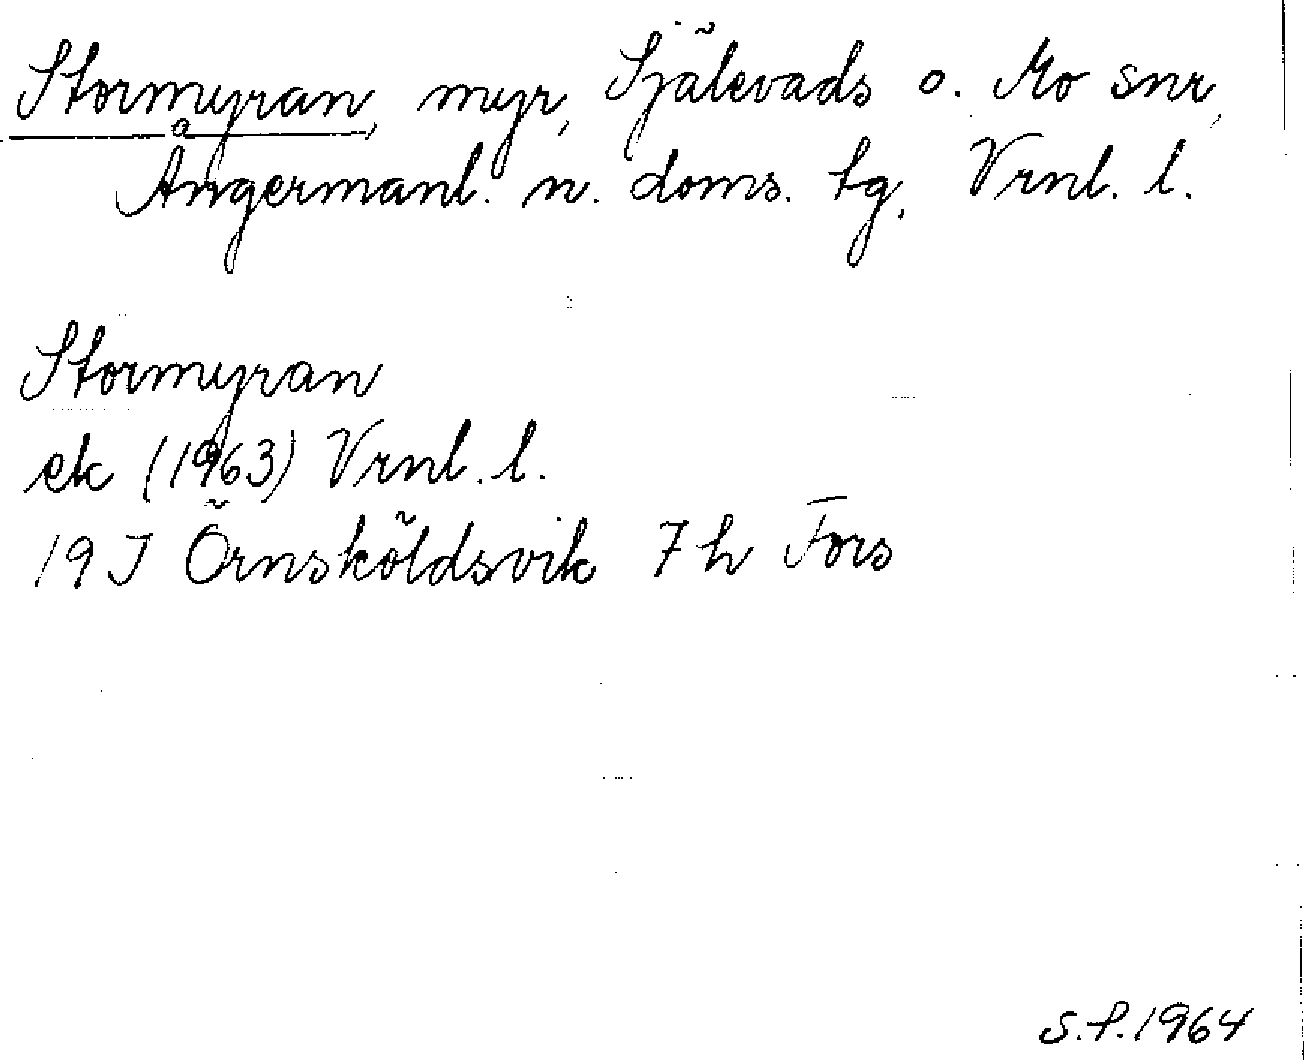 Stormyran, myr, Själevads o. Mo snr,
Ångermanl. n. doms. tg, Vrnl. l.
Stormyran
ek (1963) Vrnl. l.
19 J Örnsköldsvik 7 h Fors
S.P. 1964